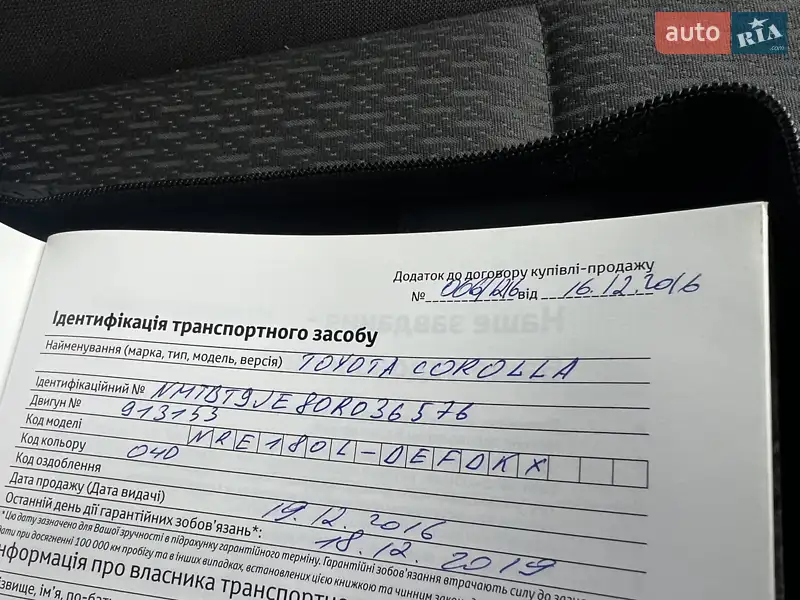 auto RIA.com
Додаток до договору купівлі-продажу
№ 066/126 від 16.12.2016
Ідентифікація транспортного засобу
Найменування (марка, тип, модель, версія) TOYOTA COROLLA
Ідентифікаційний № NMTBT9JE80R036576
Двигун № 913153
Код моделі NRE180L-DEFDKX
Код кольору 040
Код оздоблення
Дата продажу (Дата видачі) 19.12.2016
Останній день дії гарантійних зобов'язань*: 18.12.2019
*Цю дату зазначено для Вашої зручності в підрахунку гарантійного терміну. Гарантійні зобов'язання втрачають силу до
при досягненні 100 000 км пробігу та в інших випадках, встановлених цією книжкою та чинним
нформація про власника транспортно
ізвище, ім'я,